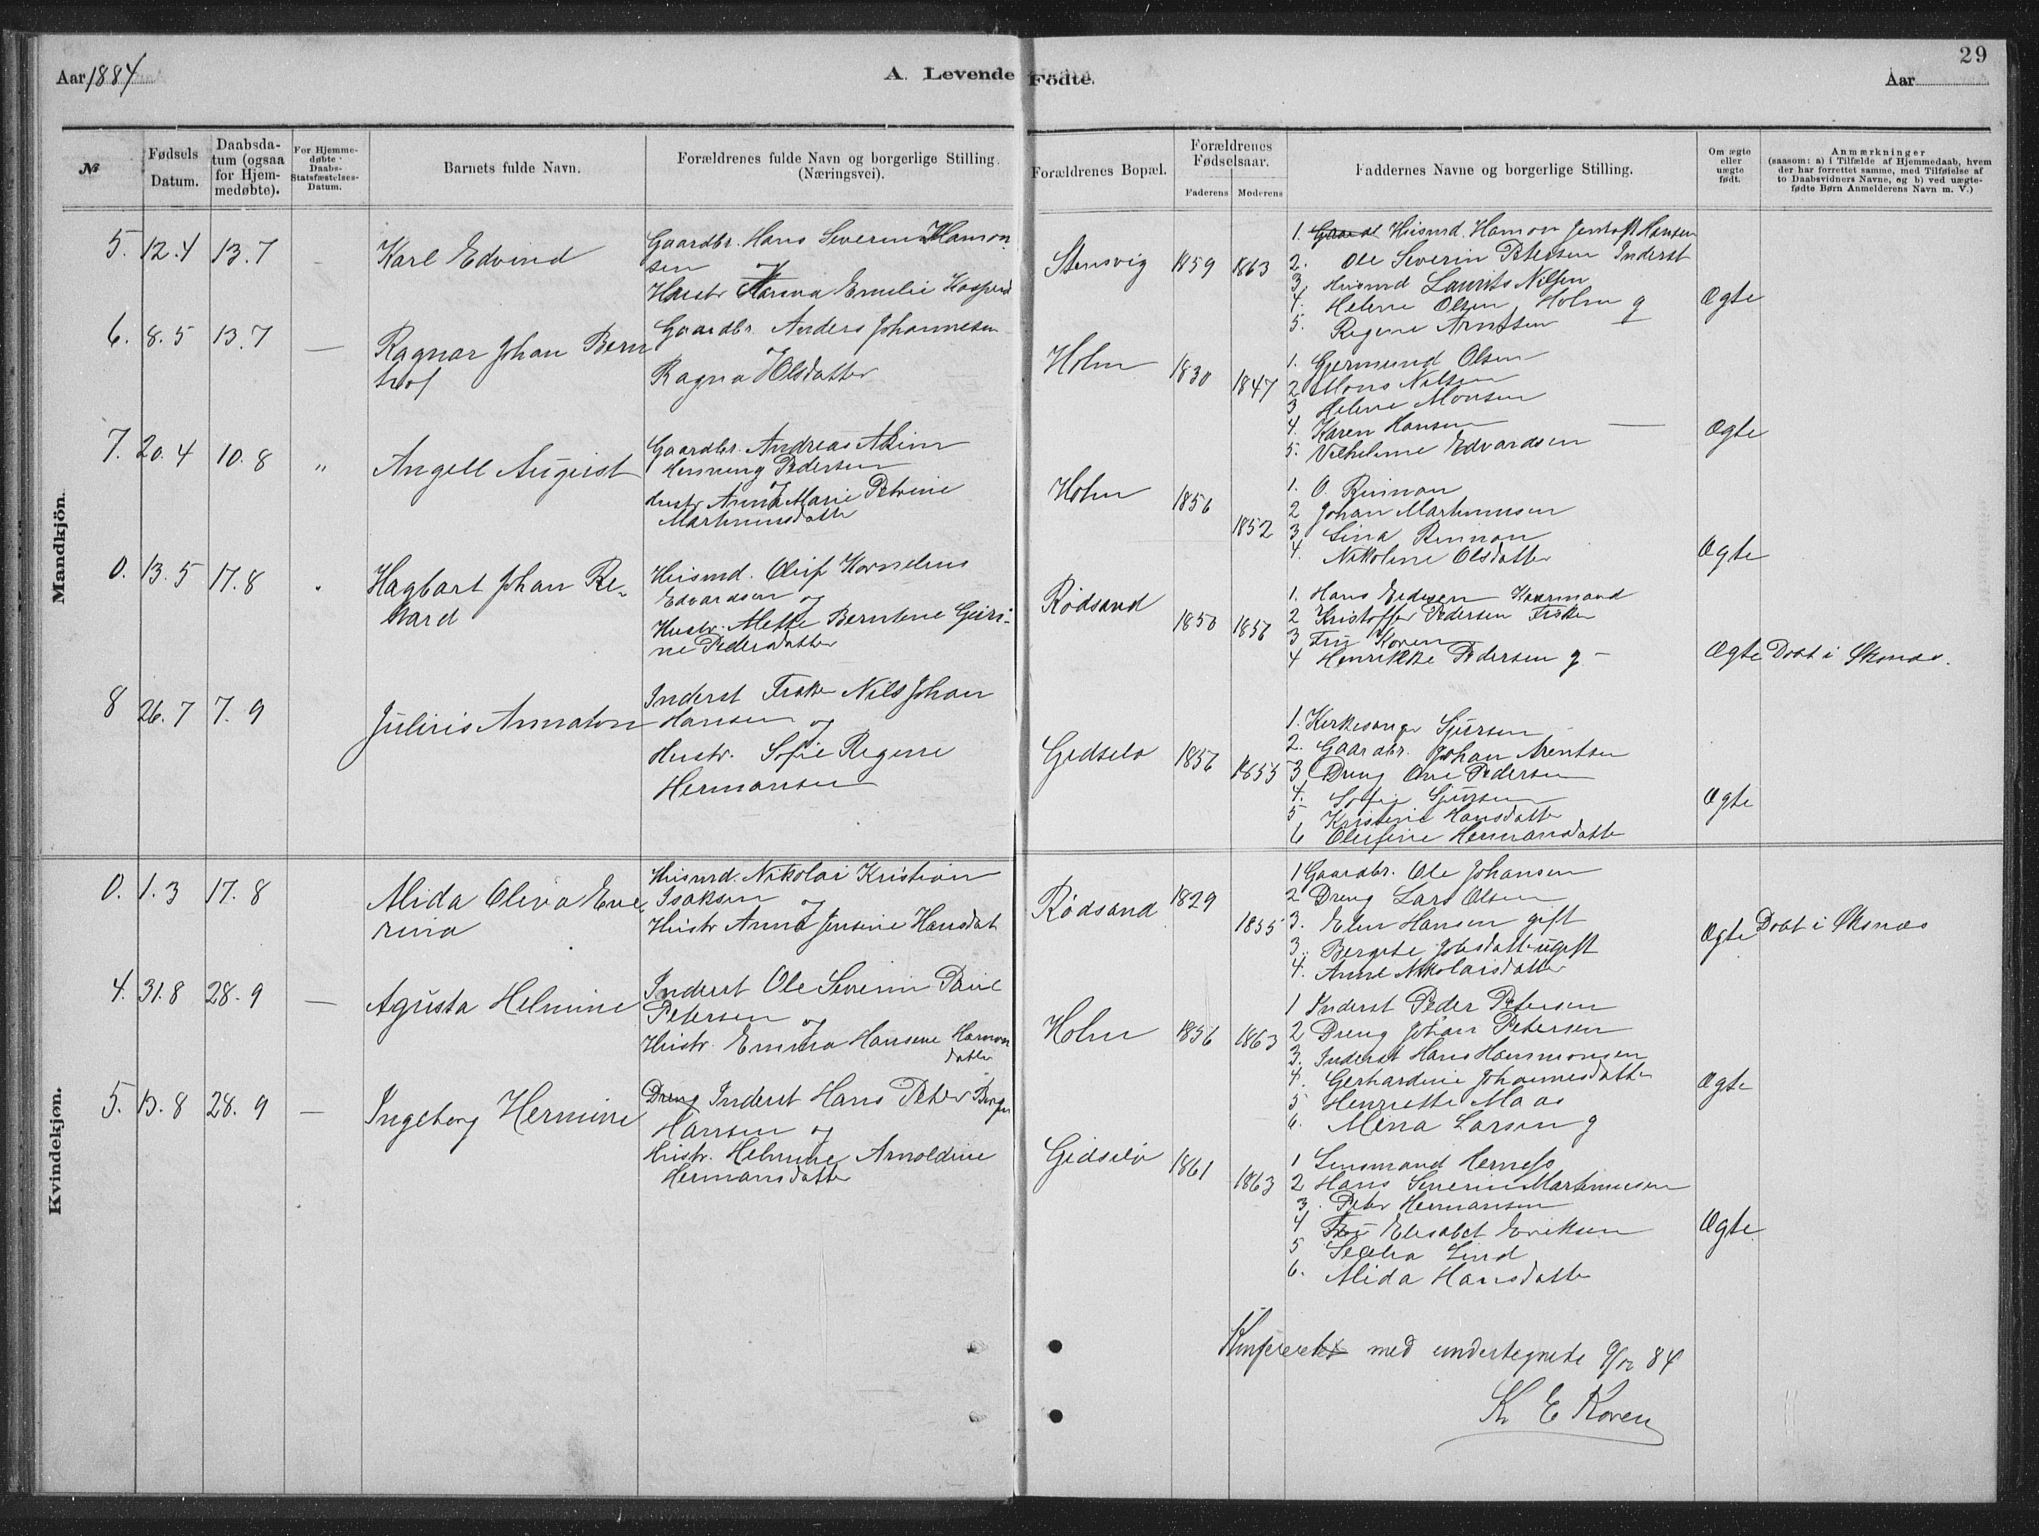 Aar 1884
A. Levende Födte.
Aar
29
№
Fødsels Datum.
Daabsdatum (ogsaa for Hjemmedøbte).
For Hjemmedøbte Daabs-Statsfæstelses-Datum.
Barnets fulde Navn.
Forældrenes fulde Navn og borgerlige Stilling. (Næringsvei).
Forældrenes Bopæl.
Forældrenes Fødselsaar.
Faderens
Moderens
Faddernes Navne og borgerlige Stilling.
Om ægte eller uægte født.
Anmærkninger
(saasom: a) i Tilfælde af Hjemmedaab, hvem
der har forrettet samme, med Tilføielse af
to Daabsvidners Navne, og b) ved uægte-
fødte Børn Anmelderens Navn m. V.)
Mandkjön.
5. 12.4 13.7
Karl Edvind
Gaardbr. Hans Severin Hamon
sen og
Hustr. Emelie
Stensvig 1859 1863
1. Husmd. Hamon Jentoft Hansen
2. Ole Severin Petersen Inderst
3. Husmd Laurits Nilsen
4. Helene Olsen Holm g
5. Regine Arntsen
Ægte
6. 8.5 13.7 —
Ragnar Johan Bern
hof
Gaardbr. Anders Johannesen
og
Ragna Olsdatter
Holm 1830 1847
1. Gjermund Olsen
2 Mons Nilsen
3 Helene Monsen
4. Karen Hansen
5. Vilhelmine Edvardsen
Ægte
7. 20.4 10.8 "
Angell August
Gaardbr. Andreas
Henning Pedersen
og
Hustr Anna Marie Petrine
Martinusdatte
Holm 1856 1852
1. O. Rinnan
2 Johan Martinusen
3 Lina Rinnan
4. Nikoline Olsdatter
Ægte
0. 13.5 17.8
Hagbart Johan Re-
kard
Husmd. Oluf Kornelius
Edvardsen og
Hustr. Mette Berntine Guri-
ne Pedersdatter
Rødsand 1850 1856
1. Hans
2 Kristoffer Pedersen Fisker
3 Koren
4 Henrikke Pedersen g —
Ægte Døbt i Øksnæs.
8 26.7 7.9
Julius Annaton
Inderst Fisker Nils Johan
Hansen og
Hustr. Sofie Regine
Hermansen
Gidselø 1856 1855
1. Kirkesanger Sjursen
2. Gaardbr. Johan Arentsen
3 Dreng Ove Pedersen
4. Sofie Sjursen
5 Kristine Hansdatte
6 Olufine Hermansdatte
Ægte
Kvindekjøn.
0. 1.3 17.8
Alida Oliva Eve
rina
Husmd. Nikolai Kristian
Isaksen og
Hustr Anna Jensine Hansdat
Rødsand 1829 1855
1 Gaardbr. Ole Johansen
2 Dreng Lars Olsen
3. Elen Hansen gift
3. Bergete ugift
4. Anne Nikolaisdatter
Ægte Døbt i Øksnæs
4. 31.8 28.9 —
Agusta Helmine
Inderst Ole Severin
Petersen og
Hustr. Emma Hansine Hamon
datter
Holm 1856 1863
1 Inderst Peder Petersen
2 Dreng Johan Petersen
3. Inderst Hans Hansmonsen
4. Gerhardine Johannesdatte
5 Henriette Maas
6. Mina Larsen g
Ægte
5. 13.8 28.9 —
Ingeborg Hermine
Dreng Inderst Hans Peter
Hansen og
Hustr. Helmine Arnoldine
Hermansdatte
Gidselø 1861 1863
1 Lensmand Herness
2 Hans Severin Martinusen
3. Peter Hermansen
4 Elisabet Eriksen
5 Lind
6. Alida Hansdatte
Ægte
Konfereret med undertegnede 9/12 84
K E Koren